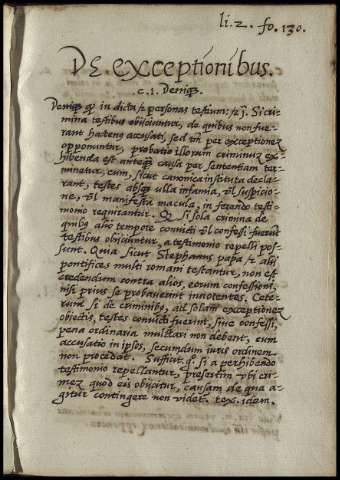 li. 2. fo. 130.
De exceptionibus.
c. 1. Deniq3.
Deniq3 in dicta et personas testium: Si cri-
mina testibus obijciuntur, de quibus non fue-
rant hactenus accusati, sed per exceptionem
opponuntur, probatio illorum criminum ex-
hibenda est anteq causa per sententiam ter-
minetur, cum, sicut canonica instituta decla-
rant, testes absq3 ulla infamia, vl suspicio-
ne, vl manifesta macula, in ferendo testi-
monio requirantur. si sola crimina de
quibus año tempore convicti vl confessi fuerint
testibus obijciuntur, a testimonio repelli pos-
sunt. Quia sicut Stephanus papa et alij
pontifices multi romani testantur, non est
credendum contra alios, eorum confessioni,
nisi prius se probaverint innocentes. Cete-
rum si de criminibus, ad solam exceptionem
obiectis, testes convicti fuerint, sive confessi,
pena ordinaria multari non debent, cum
accusatio in ipsos, secundum iuris ordinem
non procedat. Sufficit si a perhibendo
testimonio repellantur, presertim ubi cri-
men quod eis obijcitur, causam de qua a-
gitur contingere non videt. tex. idem.